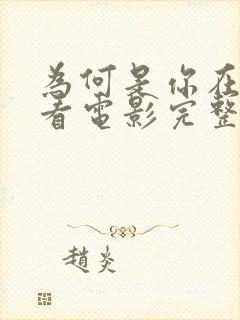 為何是你在
看電影完整
趙炎